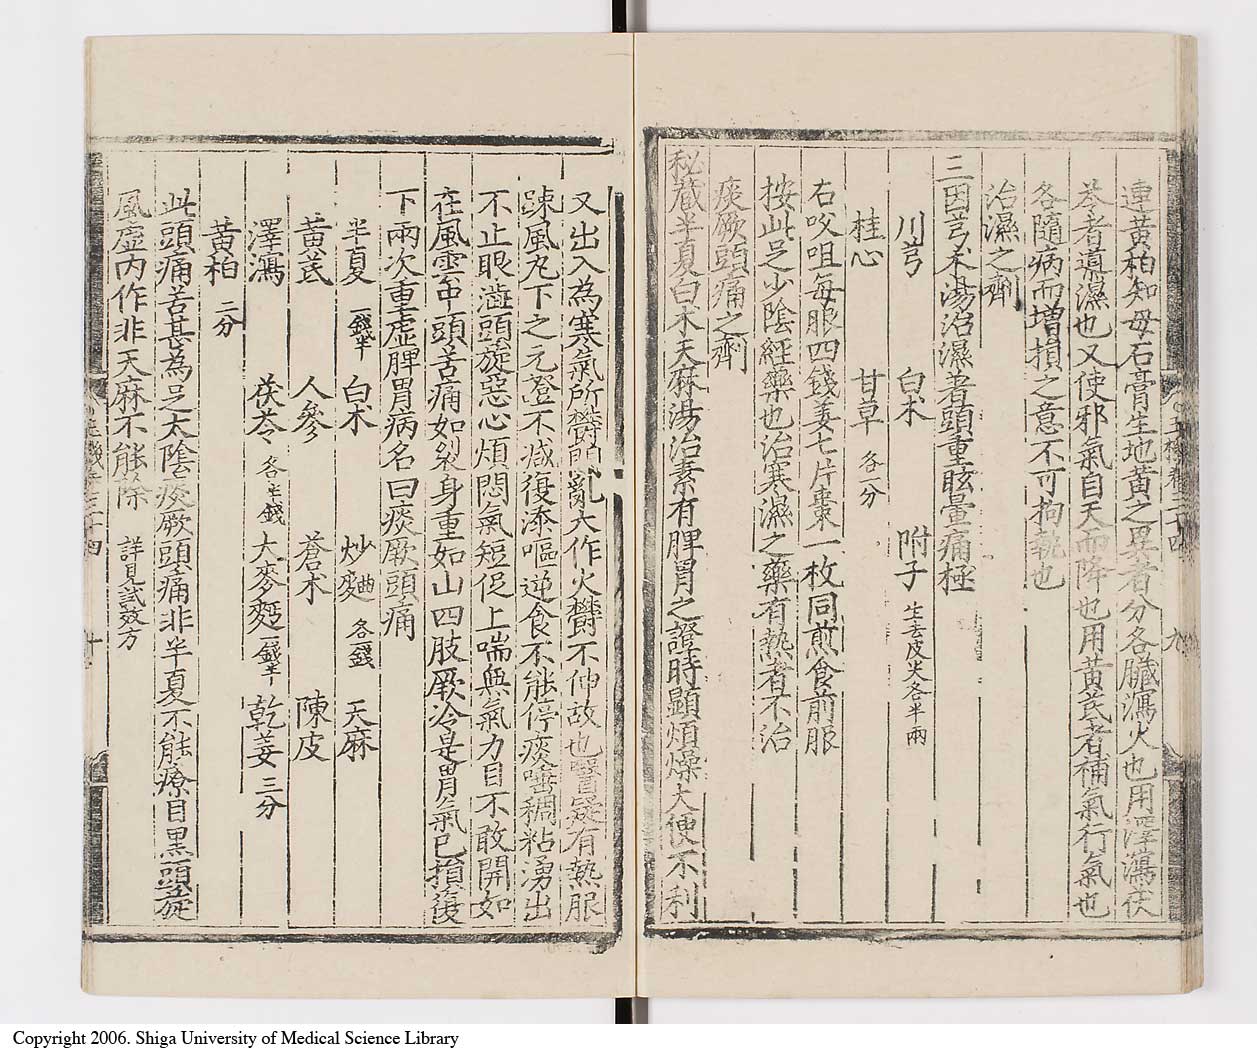 連黃柏知母石膏生地黃之異者分各臟瀉火也用澤瀉茯
苓者導濕也又使邪氣自天而降也用黃芪者補氣行氣也
各隨病而增損之意不可拘執也
治濕之劑
三因芎朮湯治濕著頭重眩暈痛極
川芎 白朮 附子 生去皮尖各半兩
桂心 甘草 各一分
右㕮咀每服四錢姜七片棗一枚同煎食前服
按此足少陰經藥也治寒濕之藥有熱者不治
痰厥頭痛之劑
秘藏半夏白朮天麻湯治素有脾胃之證時顯煩燥大便不利
九
又出入為寒氣所欝悶亂大作火欝不伸故也醫疑有熱服
踈風丸下之元證不减復添嘔逆食不能停痰唾稠粘湧出
不止眼澁頭旋惡心煩悶氣短促上喘無氣力目不敢開如
在風雲中頭苦痛如裂身重如山四肢厥冷是胃氣已損復
下兩次重虛脾胃病名曰痰厥頭痛
半夏 一錢半 白朮 炒麯 各一錢 天麻
黃芪 人參 蒼朮 陳皮
澤瀉 茯苓 各五錢 大麥麪 一錢半 乾姜 三分
黃柏 二分
此頭痛苦甚為足太陰痰厥頭痛非半夏不能療目黑頭旋
風虛內作非天麻不能除 詳見試效方
十
Copyright 2006. Shiga University of Medical Science Library